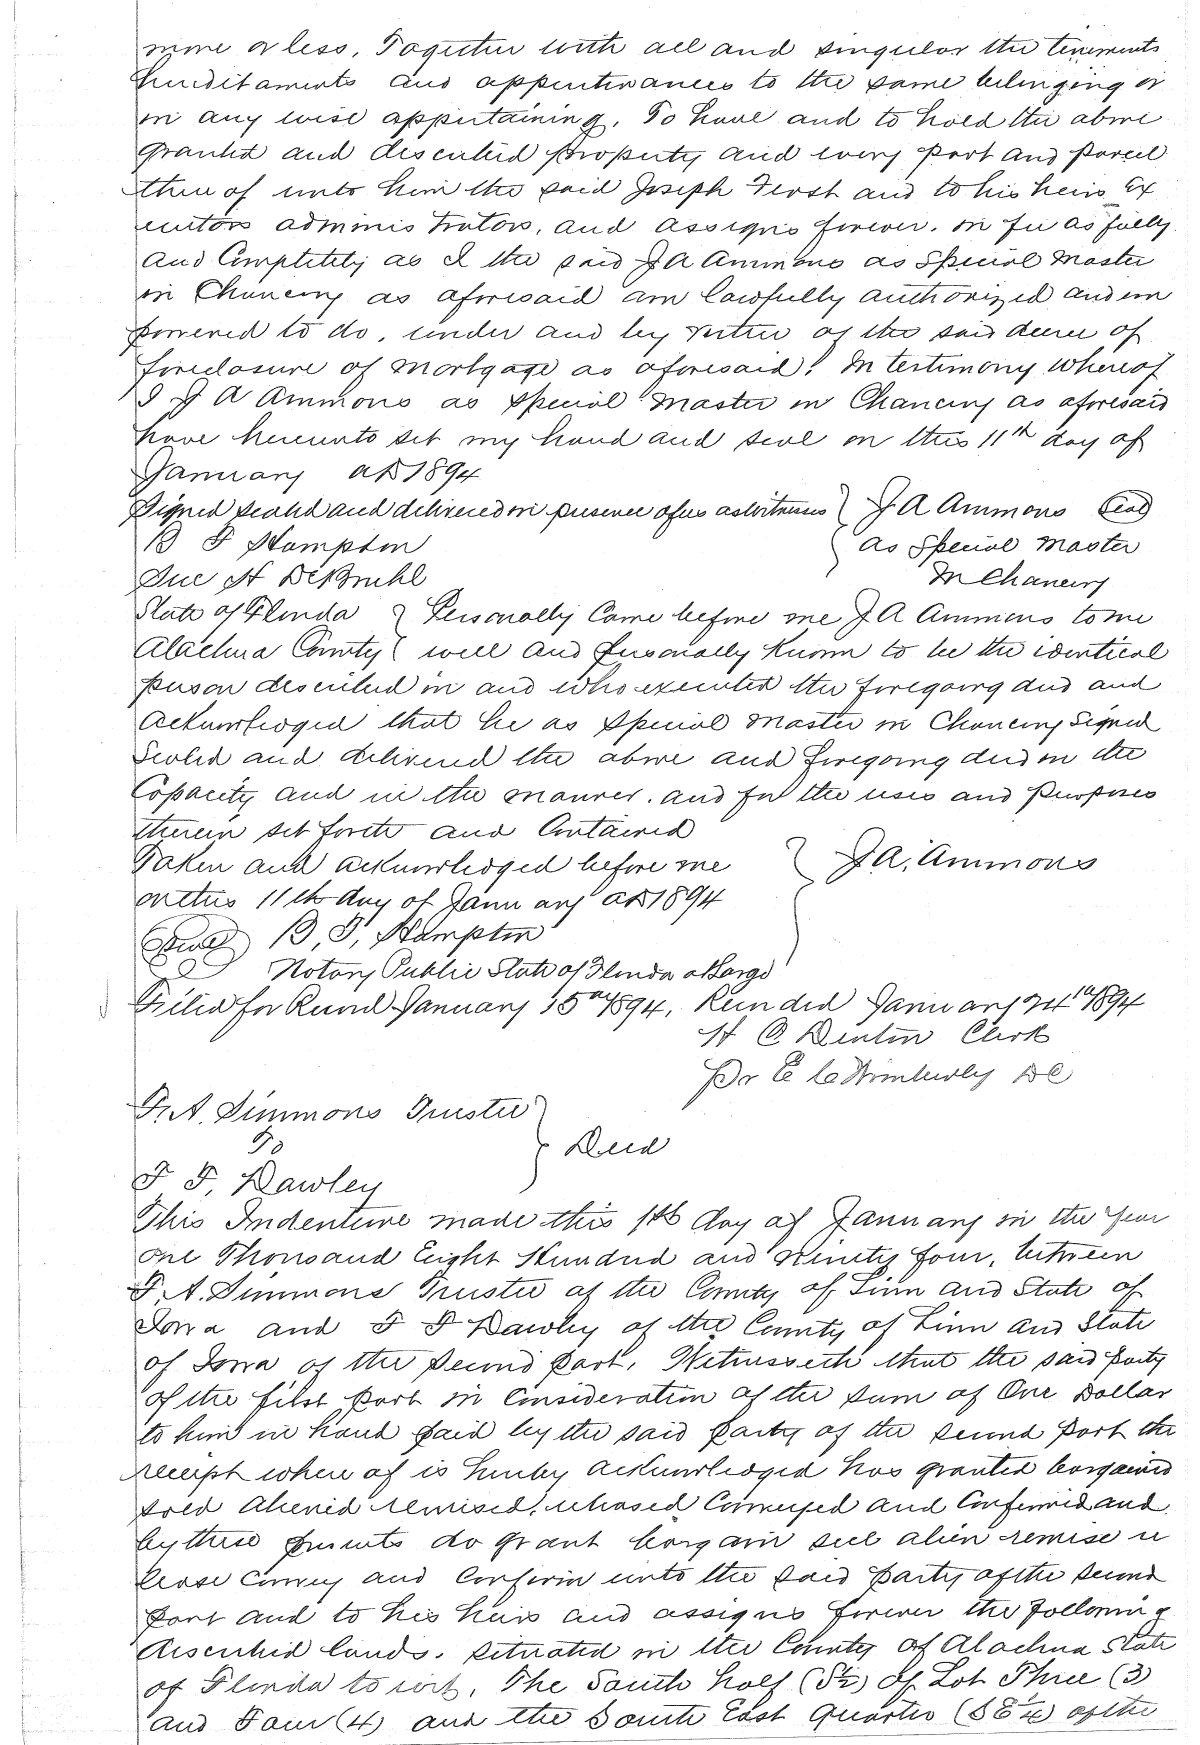 more or less, Together with all and singular the tenements
hereditaments and appurtenances to the same belonging or
in any wise appertaining, To have and to hold the above
granted and described property and every part and parcel
thereof unto him the said Joseph First and to his heirs Ex
ecutors administrators, and assigns forever. in fee as fully
and Completely as I the said J A Ammons as Special Master
in Chancery as aforesaid am lawfully authorized and em
powered to do, under and by virtue of the said decree of
foreclosure of mortgage as aforesaid! In testimony whereof
I J A Ammons as Special Master in Chancery as aforesaid
have hereunto set my hand and seal on this 11th day of
January AD 1894
Signed sealed and delivered in presence of us as witnesses } J A Ammons Seal
B F Hampton as Special Master
Sue H DeBruhl In Chancery
State of Florida } Personally Came before me J A Ammons to me
Alachua County } well and personally Known to be the identical
person described in and who executed the foregoing deed and
acknowledged that he as Special Master in Chancery Signed
Sealed and delivered the above and foregoing deed in the
Capacity and in the manner, and for the uses and purposes
therein set forth and Contained
Taken and acknowledged before me } J. A. Ammons
on this 11th day of January AD 1894
Seal B, F, Hampton
Notary Public State of Florida at Large
Filed for Record January 15th 1894, Recorded January 24th 1894
H C Denton Clerk
Pr E C Wimberly DC
F. A. Simmons Trustee
To } Deed
F F, Dawley
This Indenture made this 1st day of January in the Year
one Thousand Eight Hundred and Ninety four, between
F. A. Simmons Trustee of the County of Linn and State of
Iowa and F F Dawley of the County of Linn and State
of Iowa of the Second part, Witnesseth that the said party
of the first part in Consideration of the sum of One Dollar
to him in hand paid by the said party of the second part the
receipt where of is hereby acknowledged has granted bargained
sold aliened remised, released Conveyed and Confirmed and
by these presents do grant bargain sell alien remise re
lease Convey and Confirm unto the said party of the second
part and to his heirs and assigns forever the following
described lands, situated in the County of Alachua State
of Florida to wit, The South half (S½) of Lot Three (3)
and Four (4) and the South East Quarter (SE¼) of the